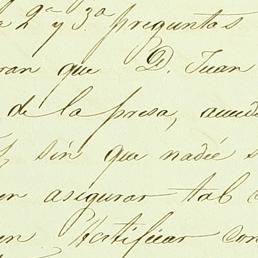 2ª y 3ª preguntas
que D. Juan
de la presa,
sin que nadie
asegurar tal
Certificar con